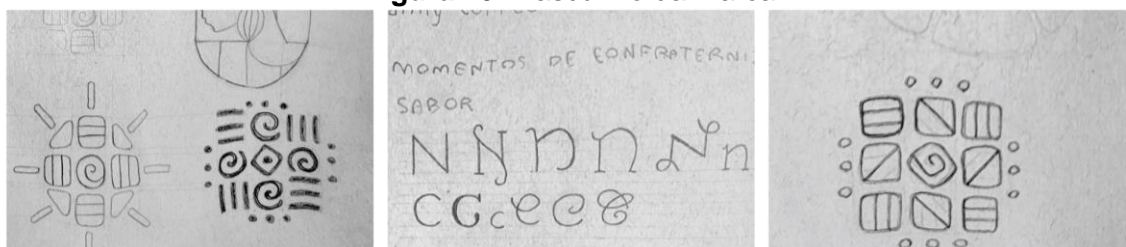 MOMENTOS DE CONFRATERNI
SABOR
N N n n N n
C G c C C C